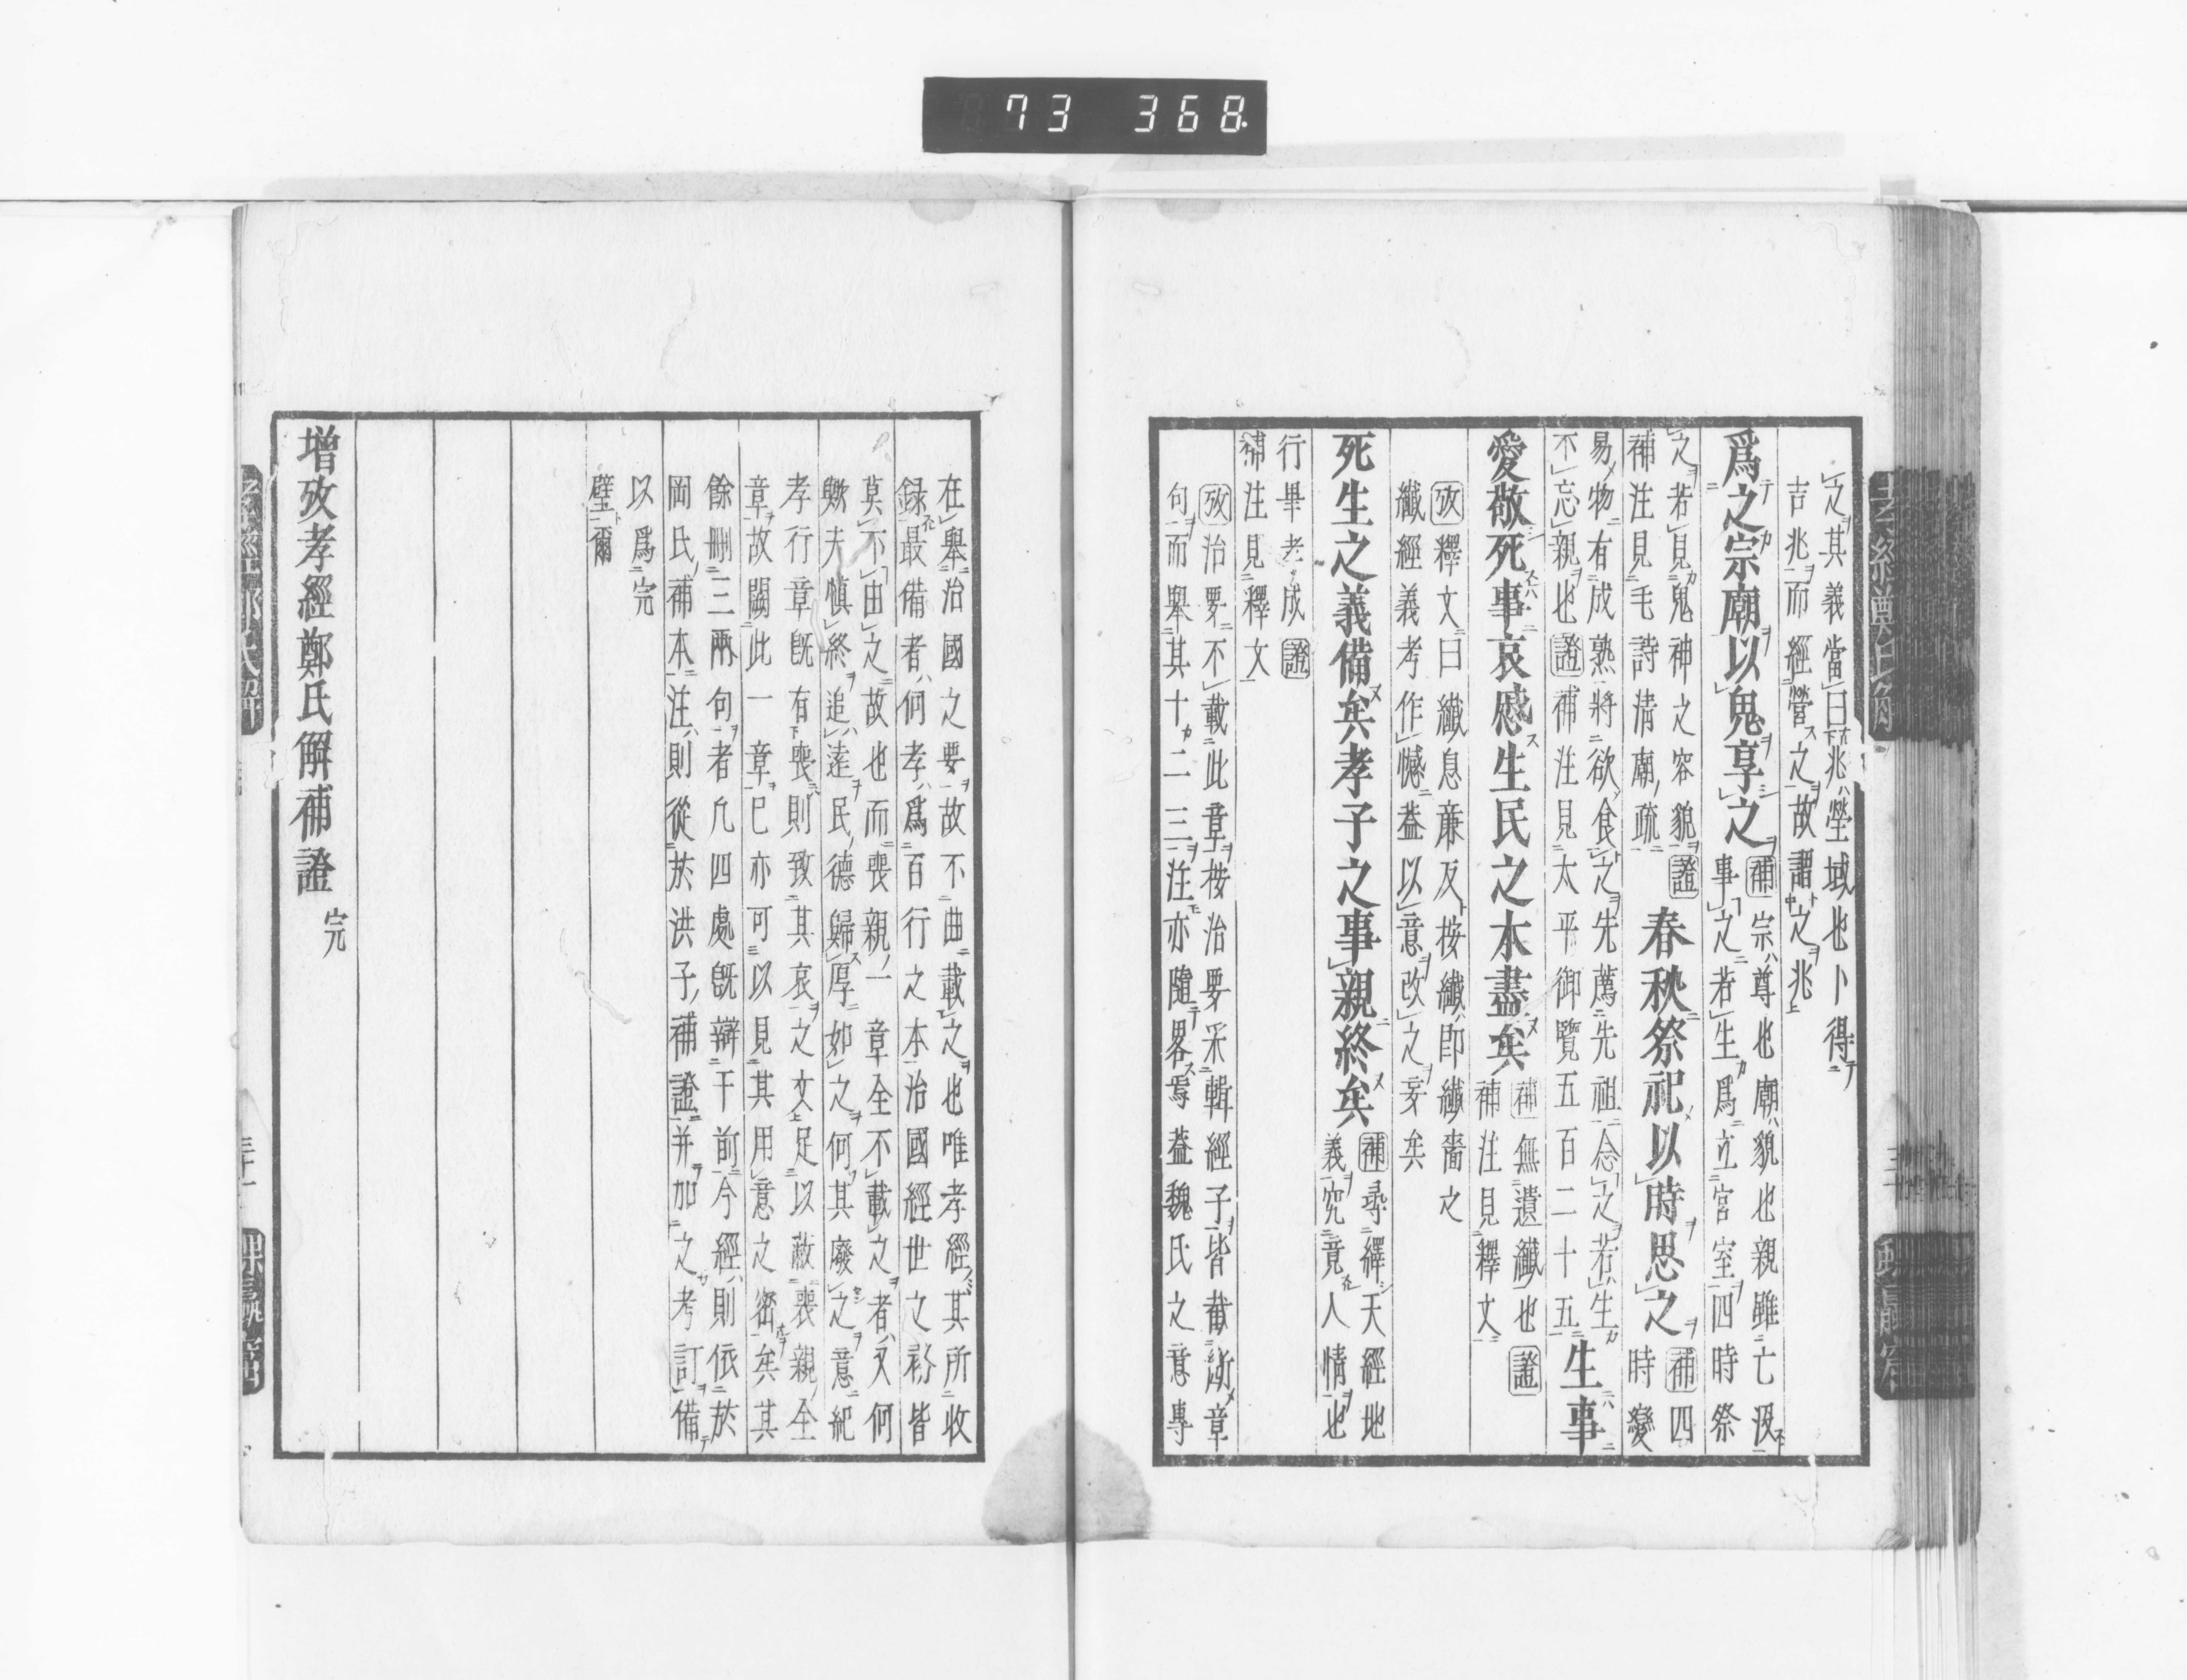 73 368
之其義當曰兆塋域也卜得
吉兆而經營之故謂之兆
爲之宗廟以鬼享之
補宗尊也廟貌也親雖亡沒
事之若生爲立宮室四時祭
之若見鬼神之容貌證
補注見毛詩清廟疏
春秋祭祀以時思之
補四
時變
易物有成熟將欲食之先薦先祖念之若生
不忘親也證補注見太平御覽五百二十五
生事
愛敬死事哀慼生民之本盡矣
補無遺纖也證
補注見釋文
攷釋文曰纖息廉反按纖即纖嗇之
纖經義考作憾蓋以意改之妄矣
死生之義備矣孝子之事親終矣
補尋繹天經地
義究竟人情也
行畢孝成證
補注見釋文
攷治要不載此章按治要采輯經子皆截斷章
句而舉其十二三注亦隨畧焉蓋魏氏之意專
在舉治國之要故不曲載之也唯孝經其所收
録最備者何孝爲百行之本治國經世之務皆
莫不由之故也而喪親一章全不載之者又何
歟夫愼終追遠民德歸厚如之何其廢之意紀
孝行章既有喪則致其哀之文足以蔽喪親全
章故闕此一章已亦可以見其用意之密矣其
餘刪三兩句者凡四處既辯于前今經則依於
岡氏補本注則從於洪子補證并加之考訂備
以爲完
璧爾
增攷孝經鄭氏解補證 完